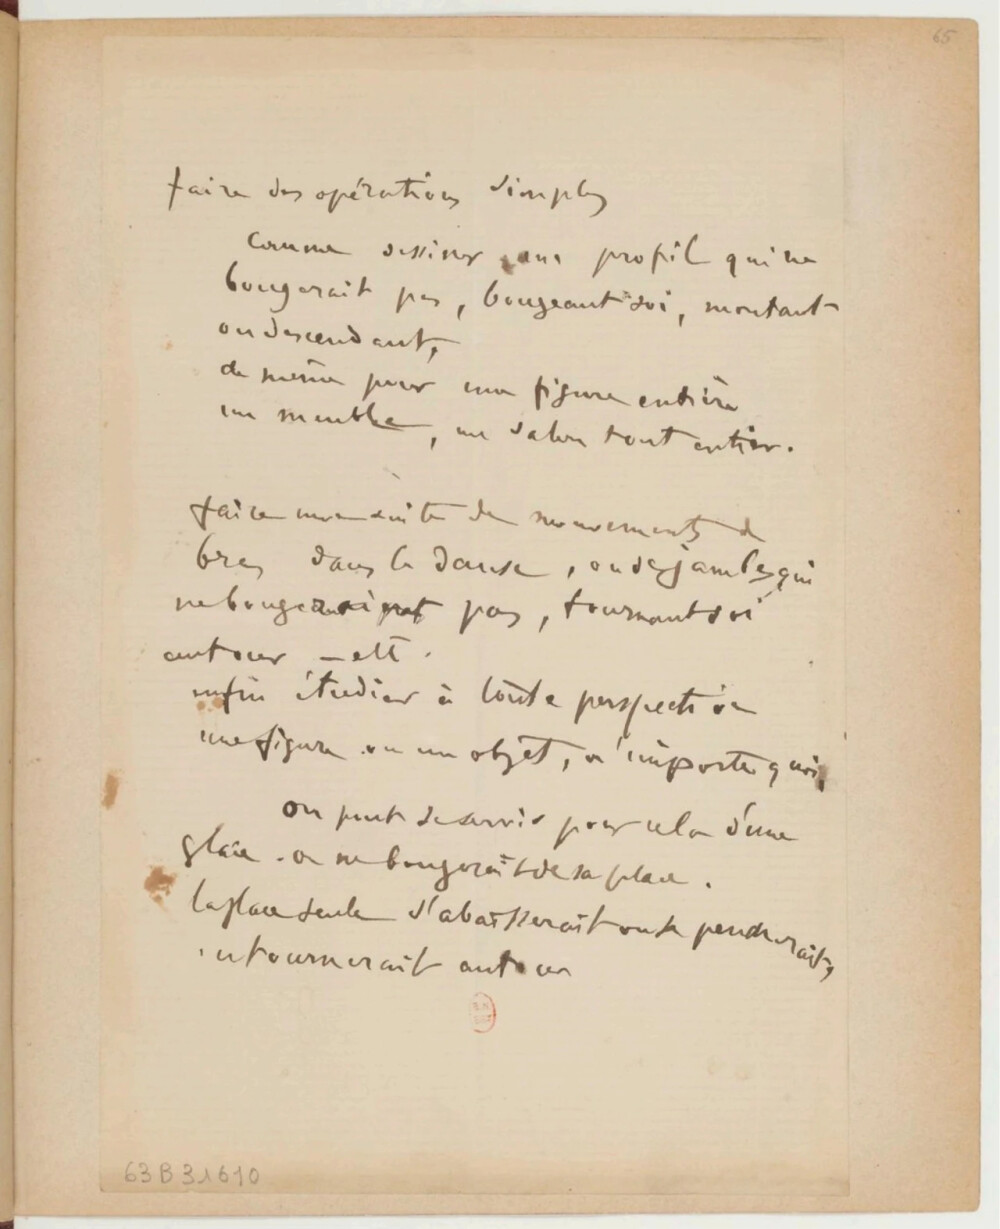 65
faire des opérations simples
comme dessiner un profil qui ne
bougerait pas, bougeant soi, montant
ou descendant,
de même pour une figure entière
un meuble, un salon tout entier.
faire une suite de mouvements de
bras dans la danse, ou de jambes qui
ne bougeraient pas, tournant soi
autour — ett.
enfin étudier à toute perspective
une figure ou un objet, n'importe quoi,
on peut se servir pour cela d'une
glace . on ne bougerait de sa place .
la place seule s'abaisserait ou se pencherait,
on tournerait autour
63B31610